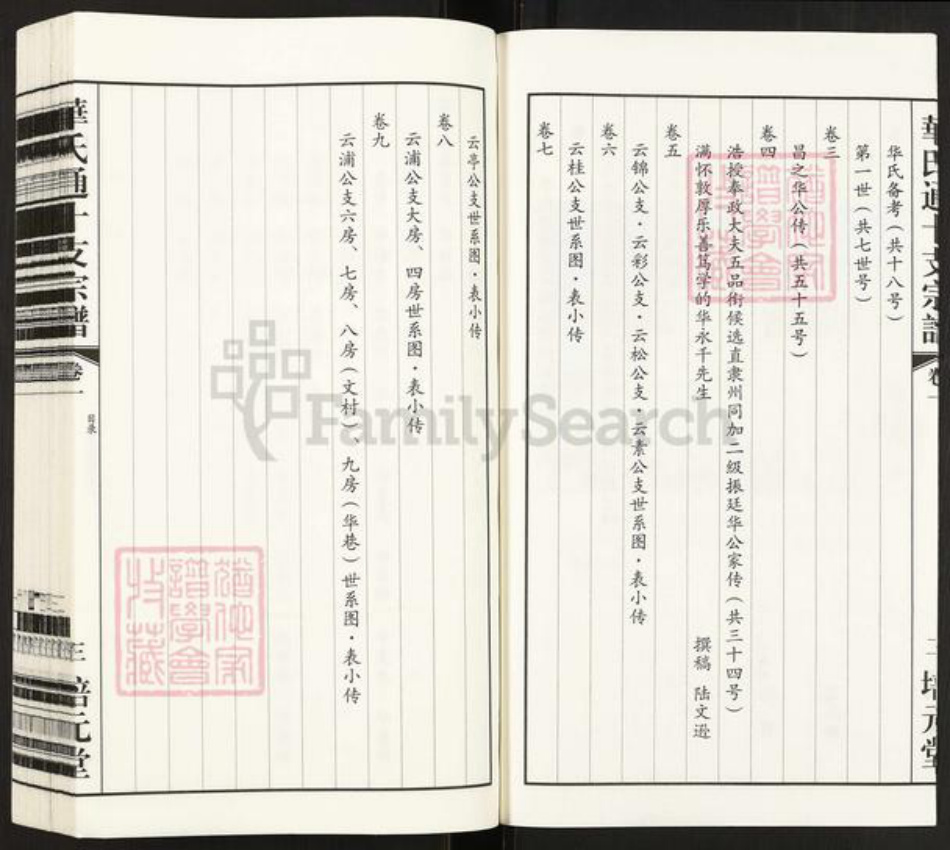 華氏通十支宗譜
卷一
三
培元堂
华氏备考（共十八号）
第一世（共七世号）
卷三
昌之华公传（共五十五号）
卷四
浩授奉政大夫五品衔候选直隶州同加二级振廷华公家传（共三十四号）
满怀敦厚乐善笃学的华永千先生
撰稿 陆文逊
卷五
云锦公支·云彩公支·云松公支·云素公支世系图·表小传
卷六
云桂公支世系图·表小传
卷七
云亭公支世系图·表小传
卷八
云浦公支大房、四房世系图·表小传
卷九
云浦公支六房、七房、八房（文村）、九房（华巷）世系图·表小传
華氏通十支宗譜
卷一
目录
三
培元堂
譜學會
收藏
FamilySearch